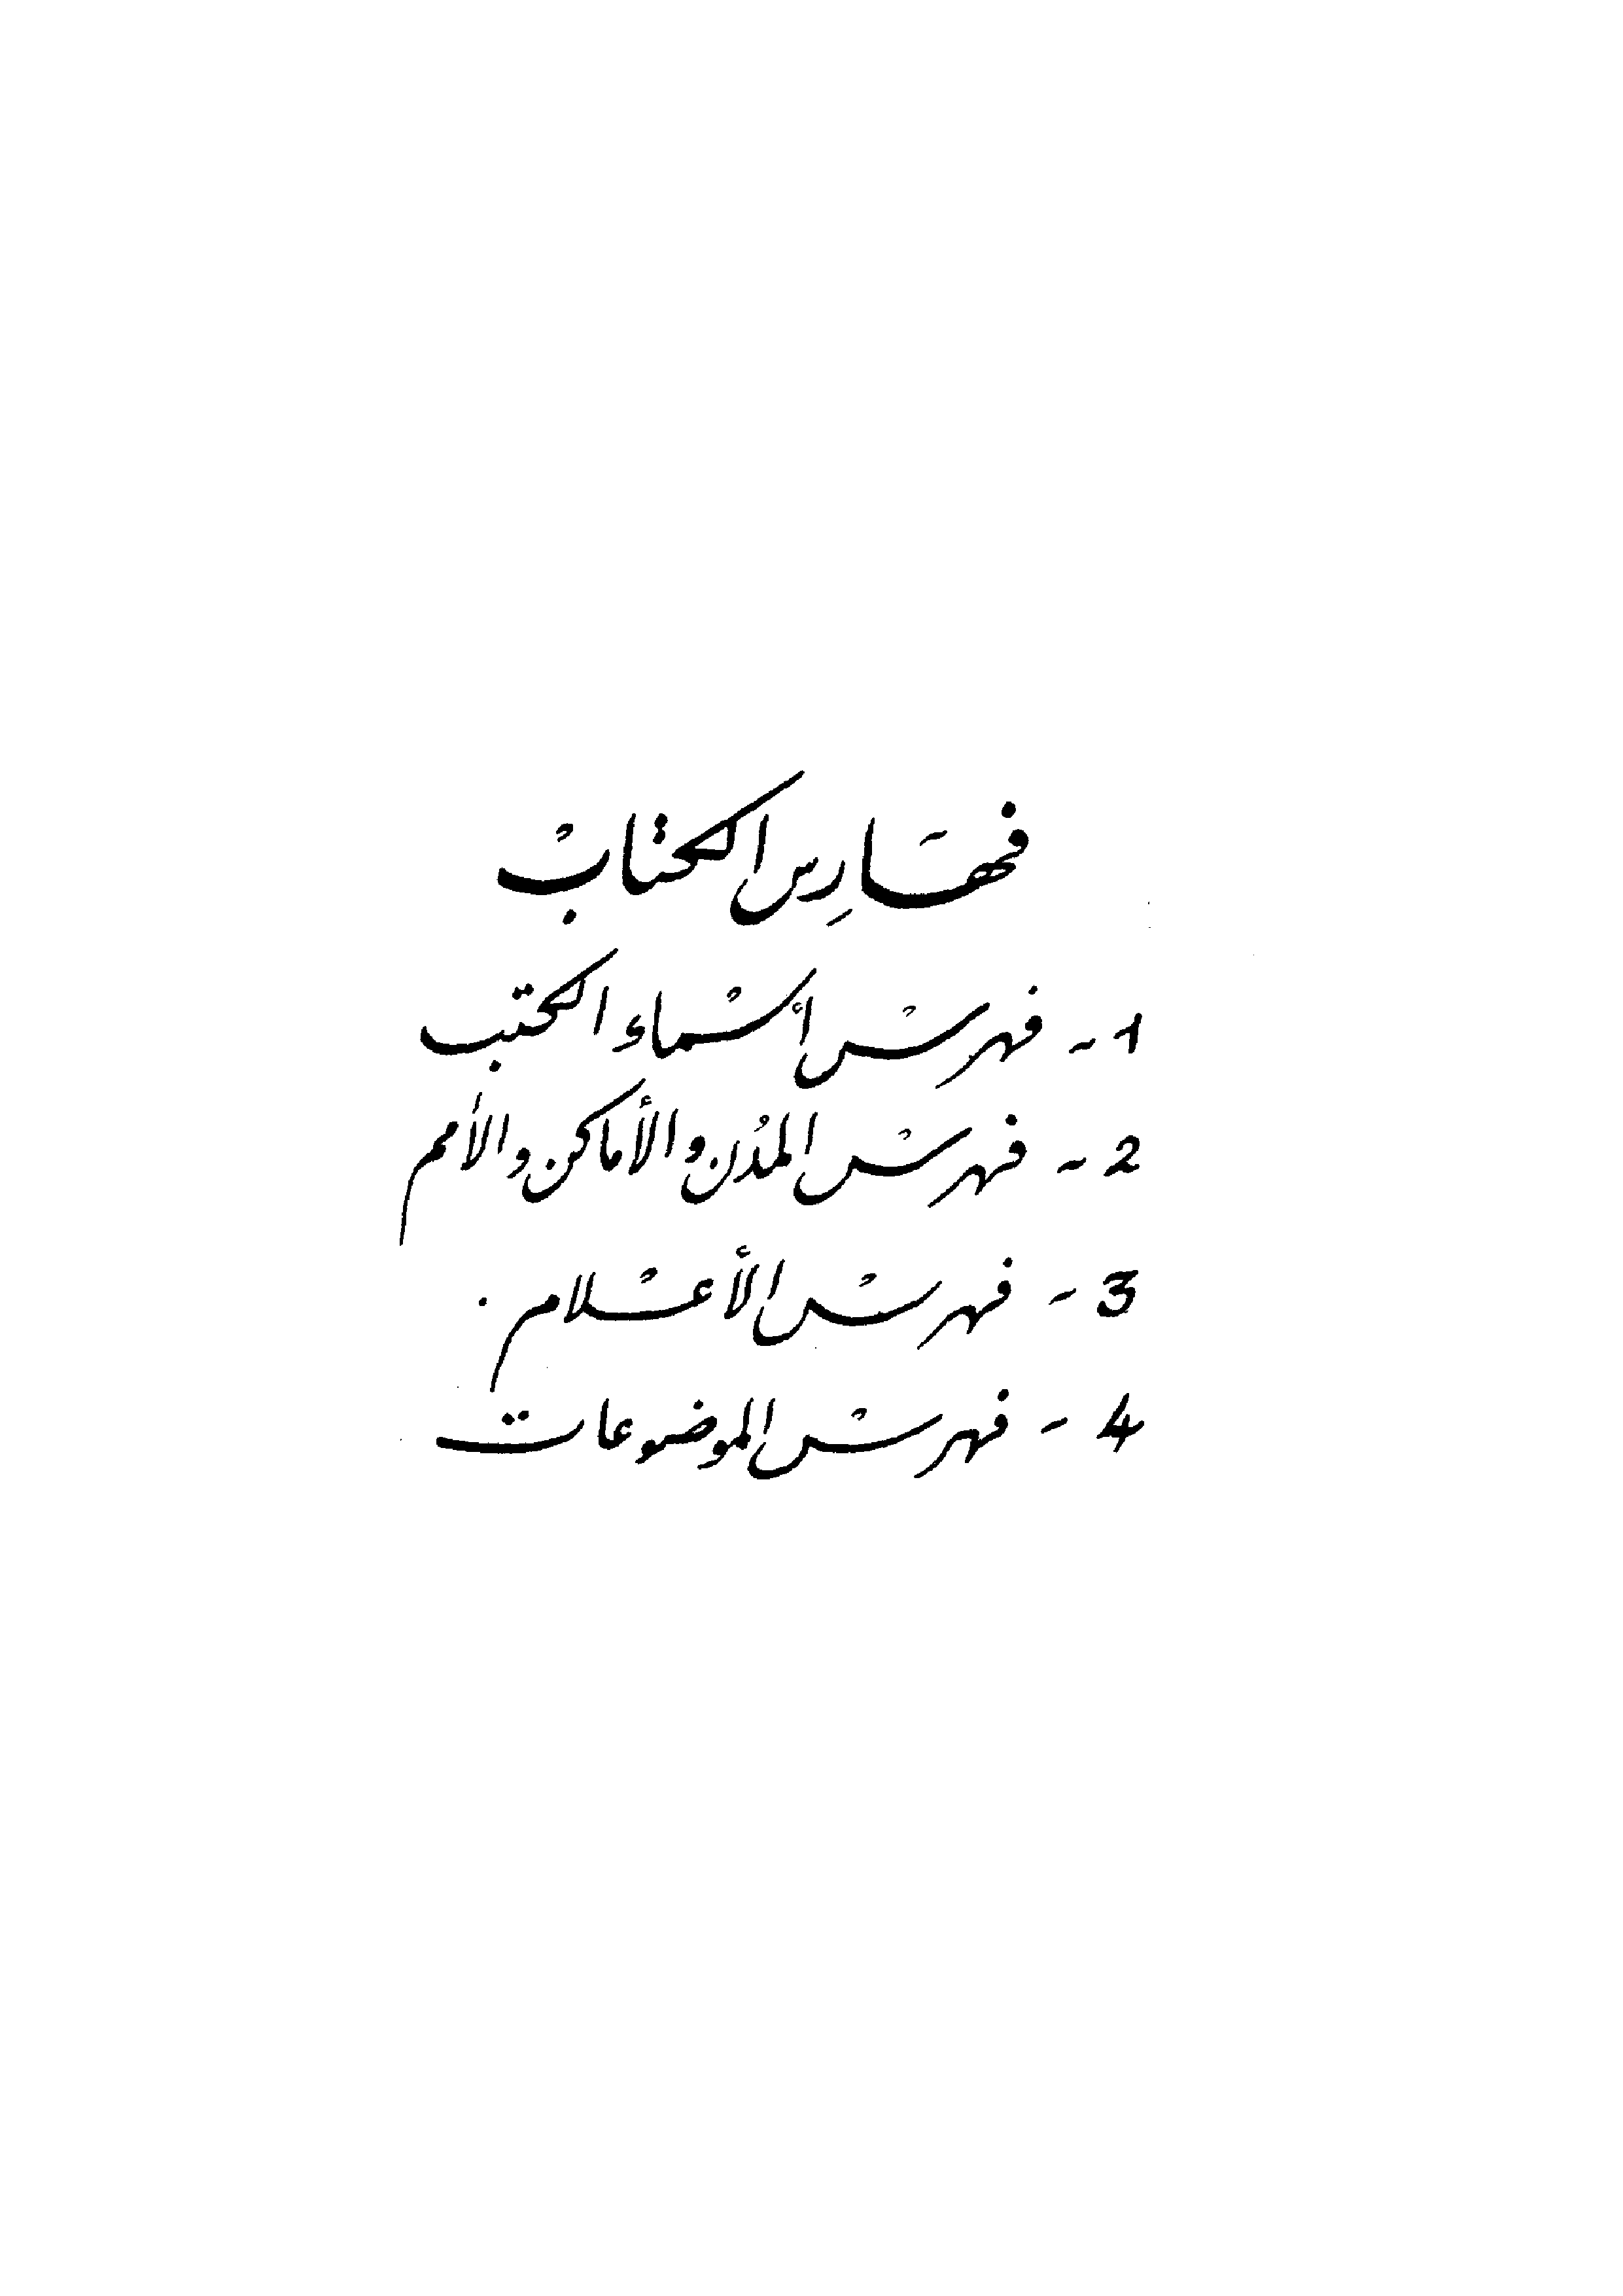 فهَارِس الكتابْ
1 - فهرسْ أسْماءِ الكتب
2 - فهرسْ المدْن والأماكن والأمم
3 - فهرسْ الأعْلام .
4 - فهرسْ الموضوعات